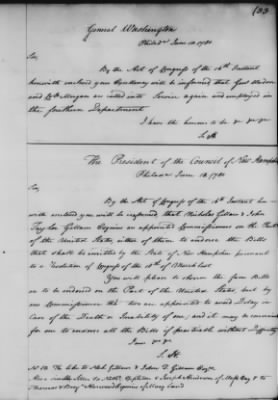 133
General Washington
Philada June 18. 1780
Sir,
By the Act of Congress of the 16th Instant
herewith enclosed your Excellency will be informed that
and Wm Morgan are called into Service again and employed in
the Southern Department
I have the honor to be &c &c &c
S. H.
The President of the Council of New Hampshire
Philada June 18. 1780
Sir,
By the Act of Congress of the 16th Instant here-
with enclosed you will be informed that Nicholas Gillman & John
Taylor Gillman Esquires are appointed Commissioners on the Part
of the United States, either of them to endorse the Bills
that shall be emitted by the State of New Hampshire pursuant
to a Resolution of Congress of the 18th of March last.
You will please to observe the same Bills
are to be endorsed on the Part of the United States but by
one Commissioner tho' two are appointed to avoid Delay in
Case of the Death or Inability of one; and it may be inconvenient
for one to endorse all the Bills if practicable without Difficulty
I am &c &c
S. H.
NB. The like to Nich. Gillman & John T. Gillman Esqrs.
Also similar letter to & Joseph Henderson of Massa Bay & to
Thomas & Benj Harwood Esquires of Maryland